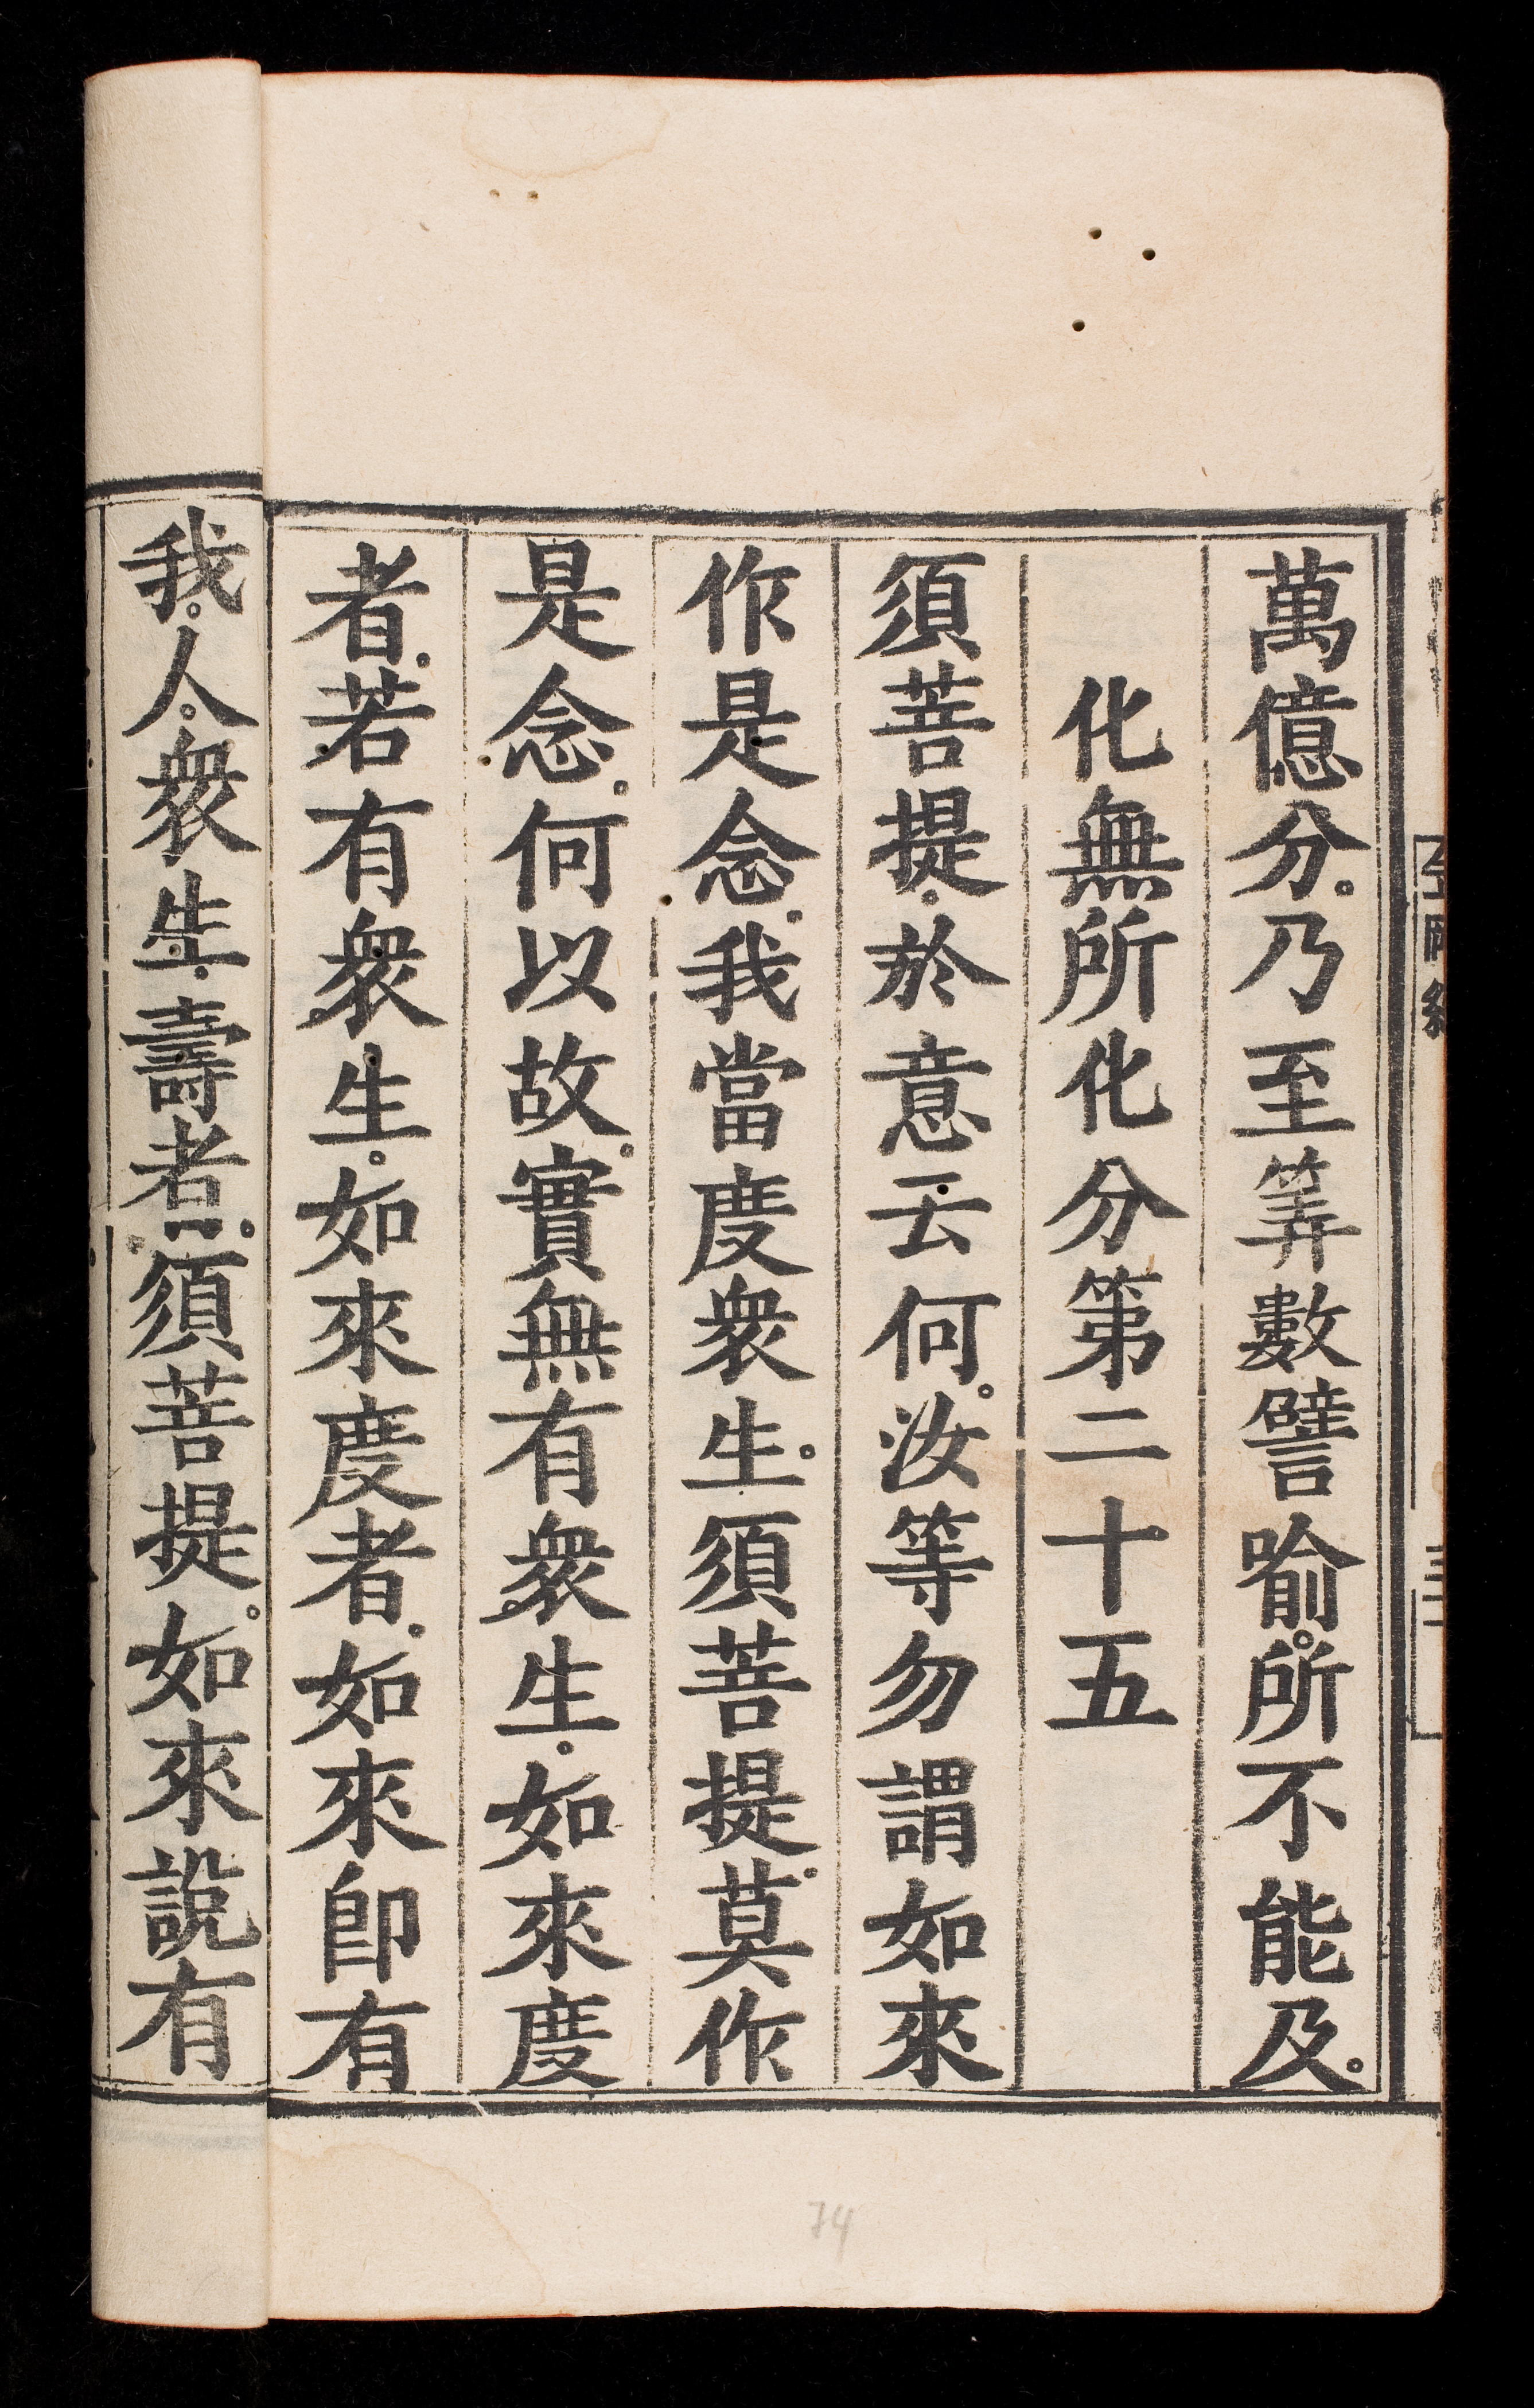 萬億分。乃至筭數譬喻。所不能及。
化無所化分第二十五
須菩提。於意云何。汝等勿謂如來
作是念。我當度衆生。須菩提。莫作
是念。何以故。實無有衆生。如來度
者。若有衆生。如來度者。如來卽有
我。人。衆生。壽者。須菩提。如來說有
74